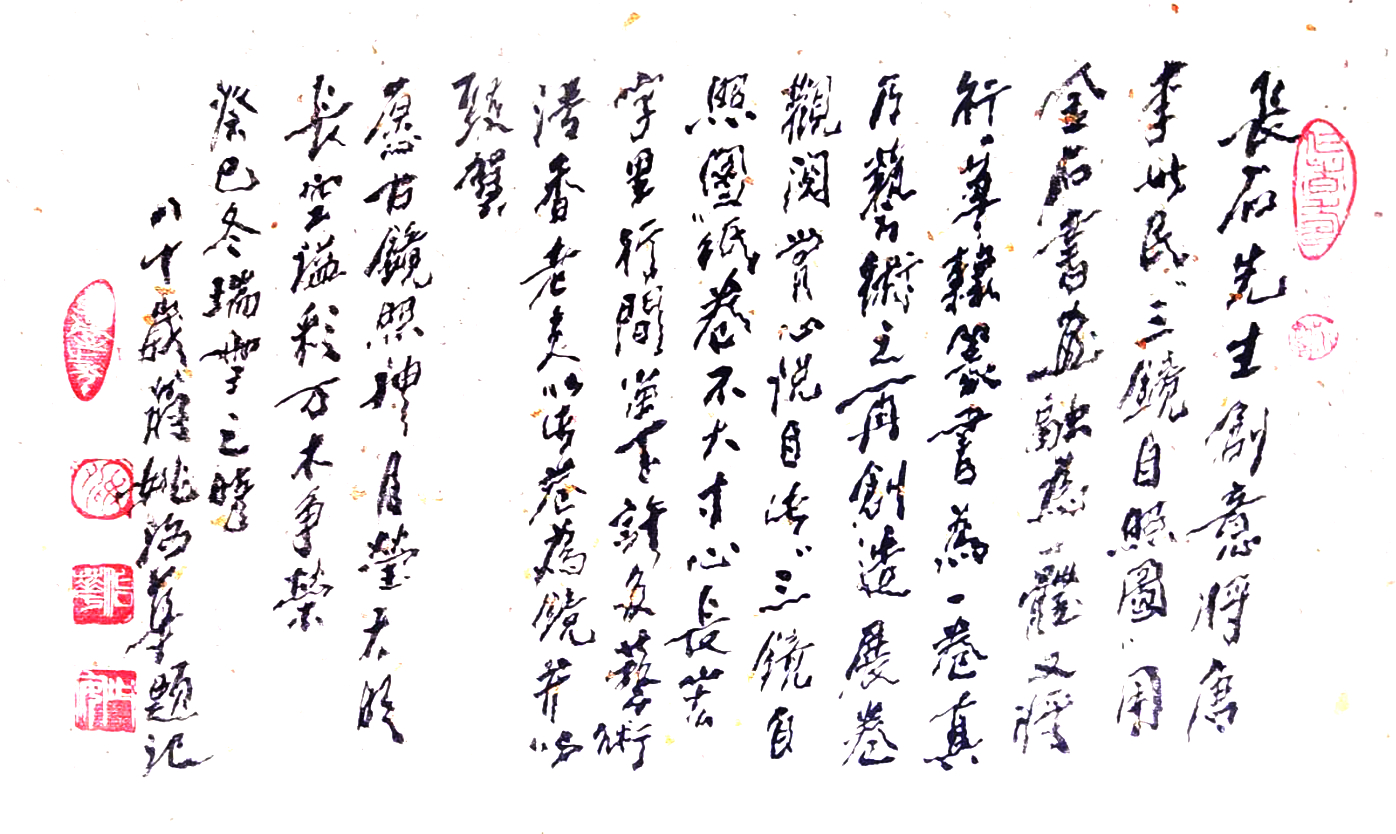 長石先生創意將唐
李世民〝三鏡自照圖〞用
金石書画融為一體又將
行草隸篆書為一卷真
乃藝術之再創造展卷
觀閱賞心悦目此〝三鏡自
照圖〞紙卷不大寸心長
字里行間 許多藝術
潜香老夫以此卷為鏡并以
致賀
愿古鏡照神月瑩天
長空溢彩万木爭榮
癸巳冬瑞雪之
八十歲蔣 題記